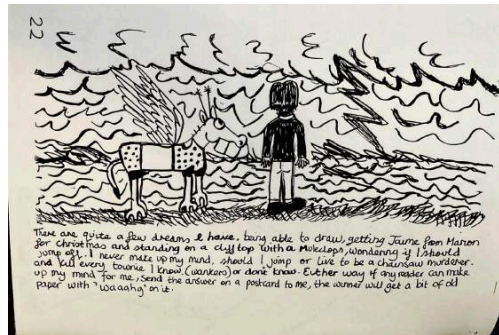 22
There are quite a few dreams I have, being able to draw, getting Jayne from Marion
for Christmas and standing on a cliff top with a Muleclops, wondering if I should
jump off. I never make up my mind, should I jump or live to be a chainsaw murderer.
and kill every townie I know, (wankers) or dont know. Either way if any reader can make
up my mind for me, send the answer on a postcard to me, the winner will get a bit of old
paper with "Waaahg" on it.